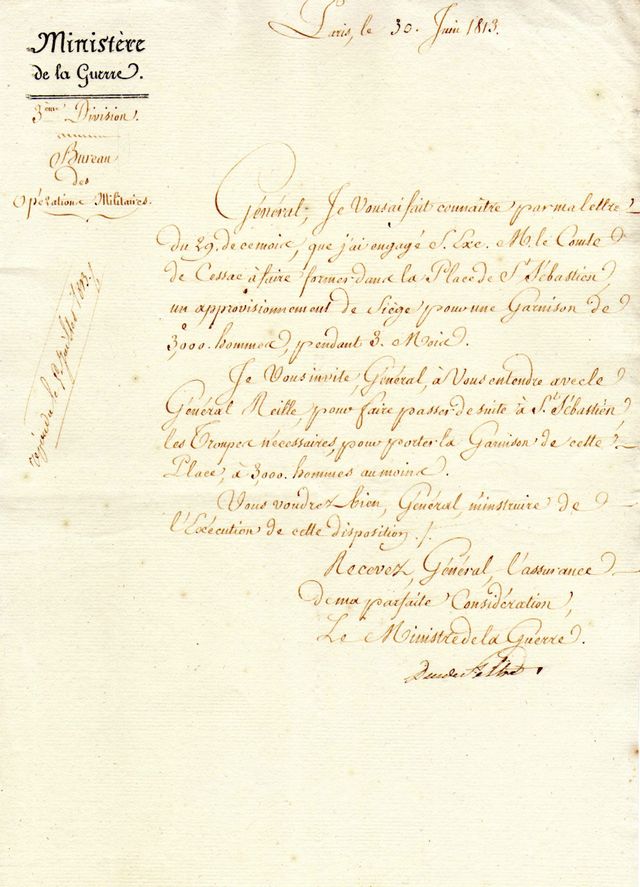 Paris, le 30. Juin 1813.
Ministère
de la Guerre.
3ème Division.
Bureau
des
Opérations Militaires.
Général, Je Vous ai fait connaître par ma lettre
du 29. de ce mois, que j'ai engagé S. Exc. M. le Comte
de Cessac à faire former dans la Place de St. Sébastien,
un approvisionnement de Siège pour une Garnison de
3,000. hommes, pendant 3. Mois.
Je Vous invite, Général, à Vous entendre avec le
Général Reille, pour faire passer de suite à St. Sébastien
les Troupes nécessaires, pour porter la Garnison de cette
Place, à 3,000. hommes au moins.
Vous voudrez bien, Général, m'instruire de
l'Exécution de cette disposition ./.
Recevez, Général, l'assurance
de ma parfaite Considération,
Le Ministre de la Guerre.
Duc de Feltre
répondu le Juillet 1813.